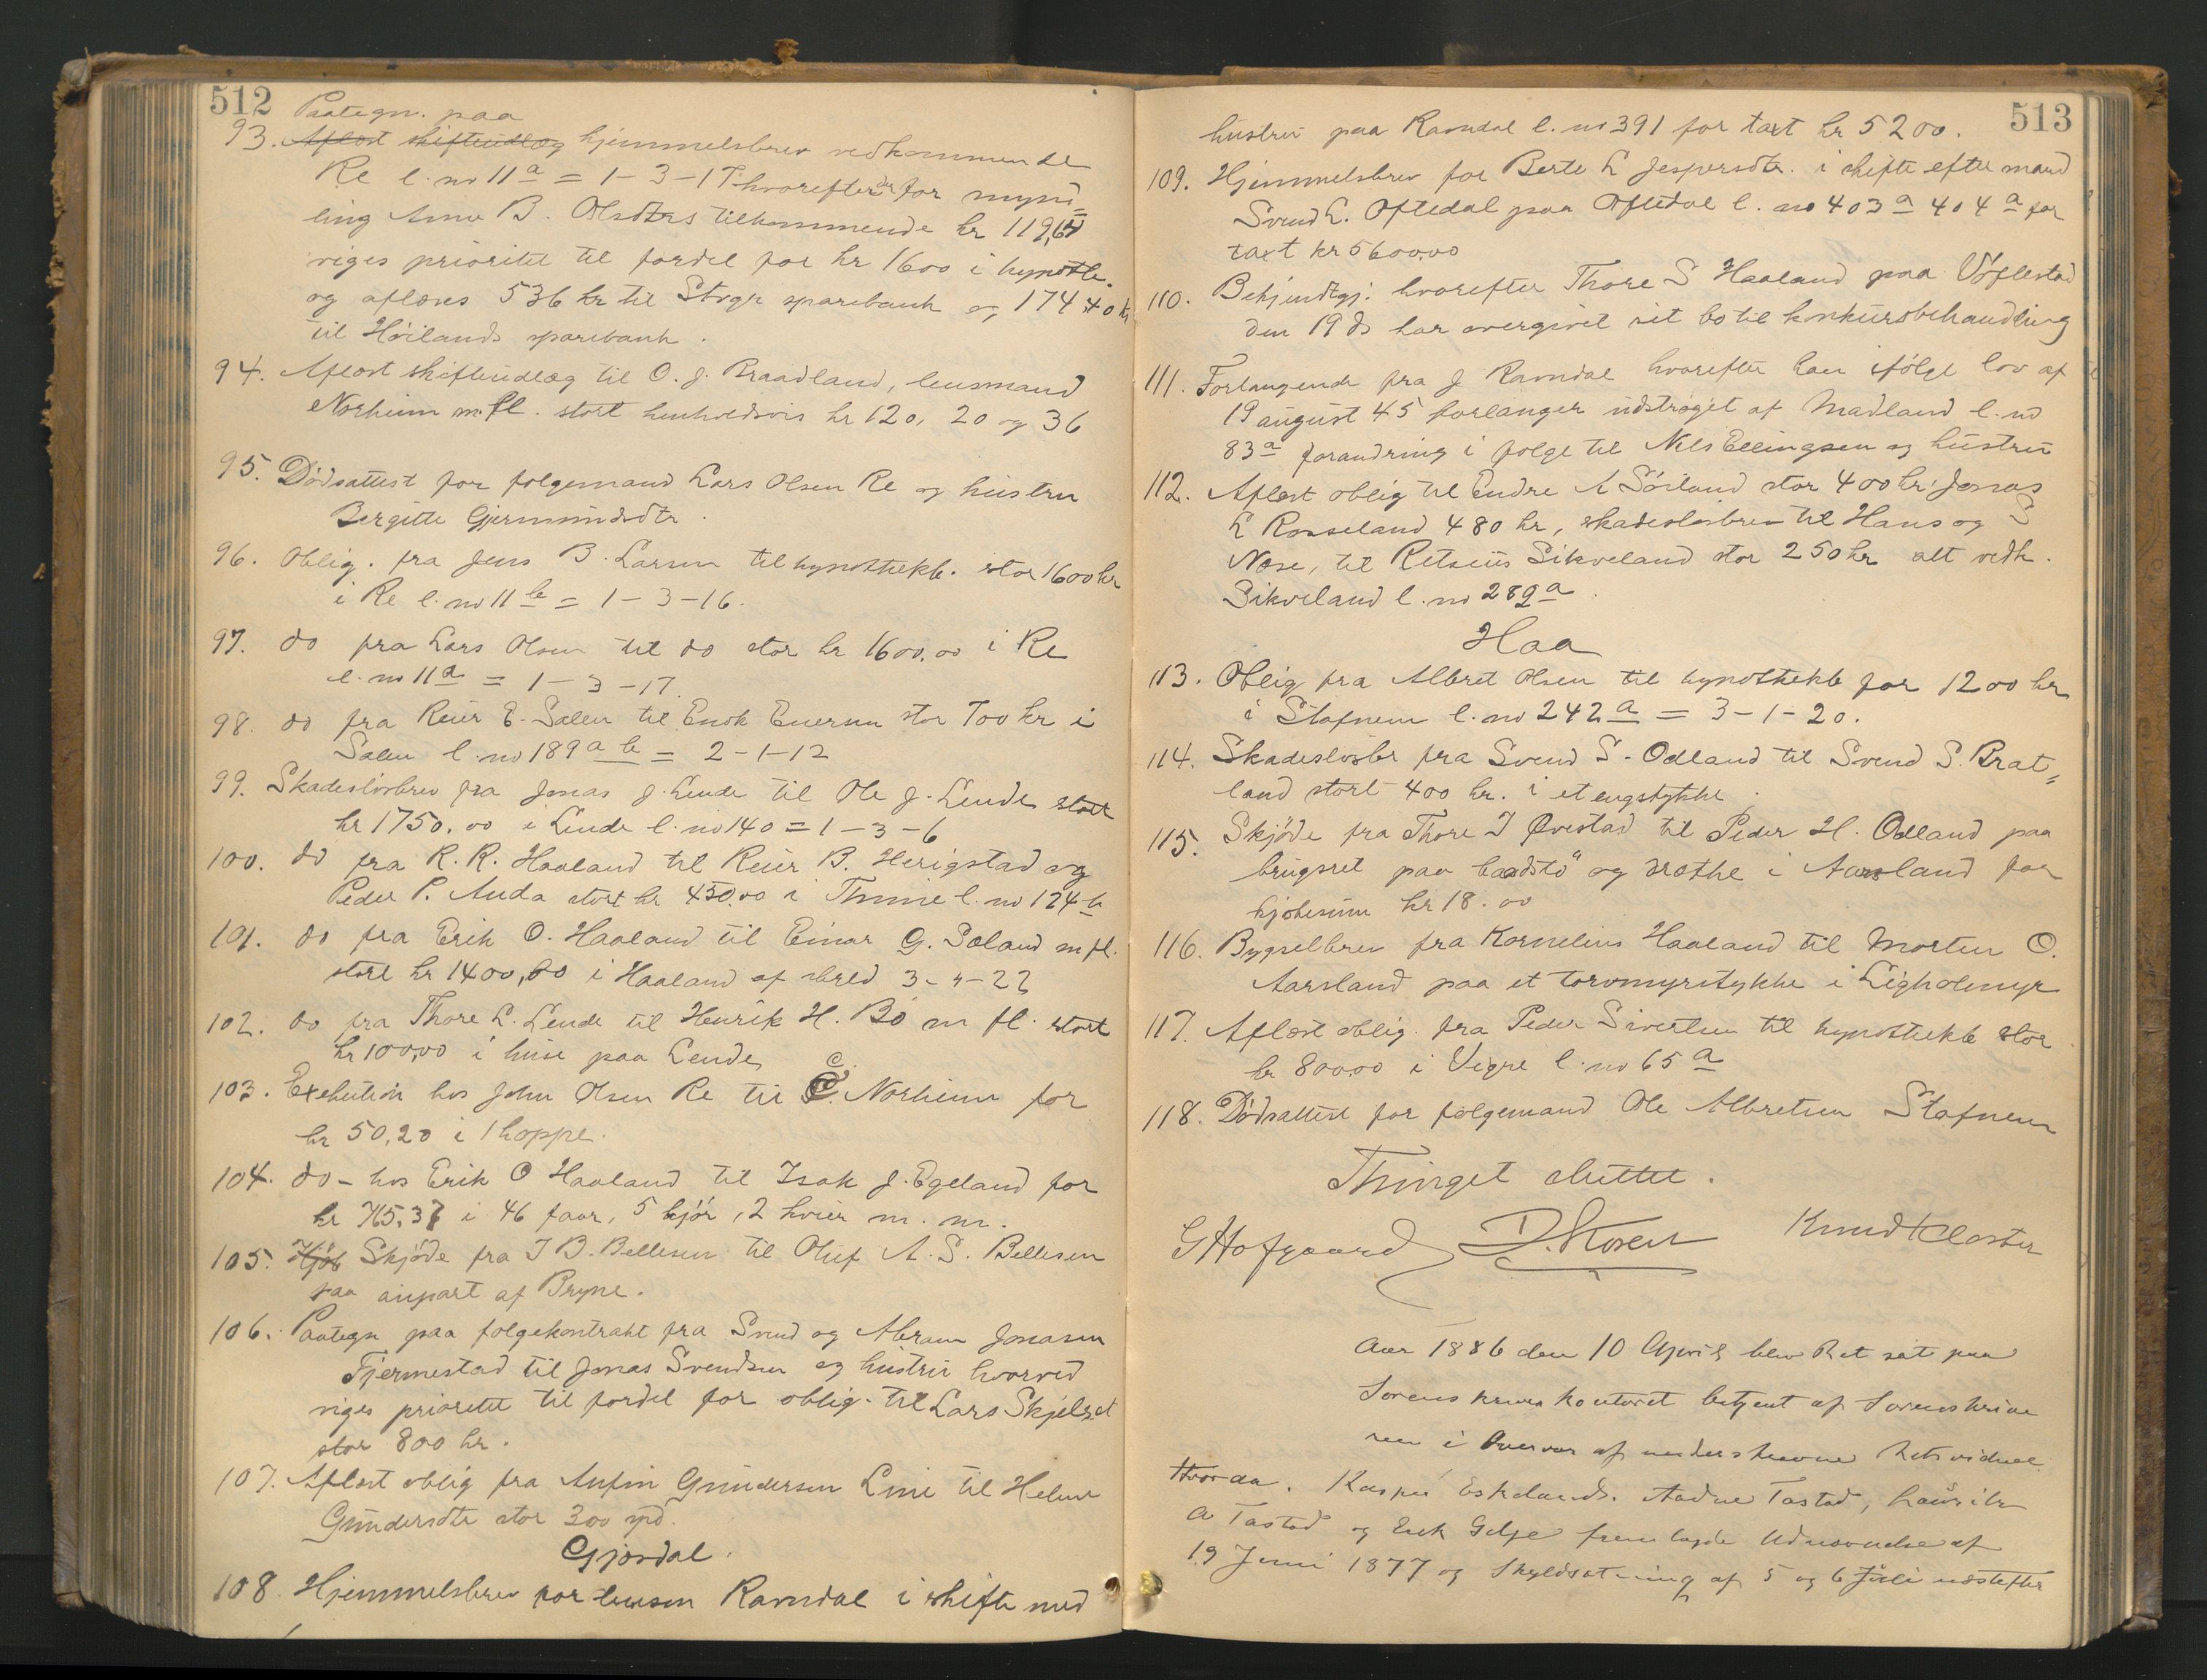 512 Paategn. paa
93. Aflæst skifteudlæg hjemmelsbrev vedkommende
Re l. no 11a = 1-3-17 hvorefter der for mynd=
ling Anne B. Olsdtrs tilkommende kr 119,64
viges prioritet til fordel for kr 1600 i hypothb.
og aflæses 536 kr til Stvgr sparebank og 174 40 kr
til Höilands sparebank.
94. Aflæst skifteudlæg til O. J. Braadland, lensmand
Norheim m. fl. stort henholdsvis kr 120, 20 og 36
95. Dödsattest for folgemand Lars Olsen Re og hustru
Bergitte Gjermundsdtr.
96. Oblig. fra Jens B. Larsen til hypothekb. stor 1600 kr
i Re l. no 11b = 1-3-16.
97. do fra Lars Olsen til do stor kr 1600.00 i Re
l. no 11a = 1-3-17.
98. do fra Reier E. Salen til Enok Enersen stor 700 kr i
Salen l. no 189 a b = 2-1-12
99. Skadeslösbrev fra Jonas J. Lende til Ole J. Lende stort
kr 1750.00 i Lende l. no 140 = 1-3-6
100. do fra R. R. Haaland til Reier B. Herigstad og
Peder P. Anda stort kr 450.00 i Thunie l. no 124 b
101. do fra Erik O. Haaland til Einar G. Sæland m fl.
stort kr 1400,00 i Haaland af skyld 3-4-22
102. do fra Thore L. Lende til Henrik H. Bö m fl. stort
kr 100,00 i huse paa Lende
103. Exekution hos John Olsen Re til C. Norheim for
kr 50,20 i 1 hoppe.
104. do - hos Erik O Haaland til Isak J. Egeland for
kr 765.37 i 46 faar, 5 kjör, 2 kvier m. m.
105. Kjöb Skjöde fra J B. Bellesen til Oluf A. S. Bellesen
paa anpart af Bryne.
106. Paategn paa folgekontrakt fra Svend og Abram Jonasen
Fjermestad til Jonas Svendsen og hustru hvorved
viges prioritet til fordel for oblig. til Lars Skjelset
stor 800 kr.
107. Aflæst oblig fra Anfin Gundersen Line til Helene
Gundersdtr stor 300 spd.
Gjesdal.
108. Hjemmelsbrev for Ravndal i skifte med
513
hustru paa Ravndal l. no 391 for taxt kr 5200.
109. Hjemmelsbrev for Berte L Jespersdtr. i skifte efter mand
Svend L. Oftedal paa Oftedal l. no 403 a 404 a for
taxt kr 5600,00
110. Bekjendtgj. hvorefter Thore S Haaland paa Vöflestad
den 19 ds har overgivet sit bo til konkursbehandling
111. Forlangende fra J Ravndal hvorefter han ifölge lov af
19 august 45 forlanger udströget af Madland l. no
83a forandring i folge til Nils Ellingsen og hustru
112. Aflæst oblig til Endre A Söiland stor 400 kr, Jonas
L Rosseland 480 kr, skadeslösbrev til Hans og
Næse, til Retseius Sikveland stor 250 kr alt vedk.
Sikveland l. no 282 a.
Haa
113. Oblig fra Albret Olsen til hypothekb for 1200 kr
i Stafnem l. no 242 a = 3-1-20.
114. Skadeslösbr fra Svend S. Odland til Svend S. Brat=
land stort 400 kr. i et engstykke.
115. Skjöde fra Thore I Øvestad til Peder H. Odland paa
brugsret paa baadstö og drætte i Aarsland for
kjöbesum kr 18.00
116. Bygselbrev fra Kornelius Haaland til Morten O.
Aarsland paa et torvmyrstykke i Ligholemyr
117. Aflæst oblig. fra Peder Sivertsen til hypothekb stor
kr 800,00 i Vigre l. no 65 a
118. Dödsattest for folgemand Ole Albretsen Stafnem
Thinget sluttet.
G Hofgaard D. Rosen Knud Kloster
Aar 1886 den 10 April blev Ret sat paa
Sorenskriverkontoret betjent af Sorenskrive
ren i Overvær af underskrevne Retsvidner
Hvorda. Kasper Eskeland. Aadne Tastad, Laurits
A Tastad og Erik Gilje fremlagde Udnævnelse af
19 Juni 1877 og Skyldsætning af 5 og 6 Juli